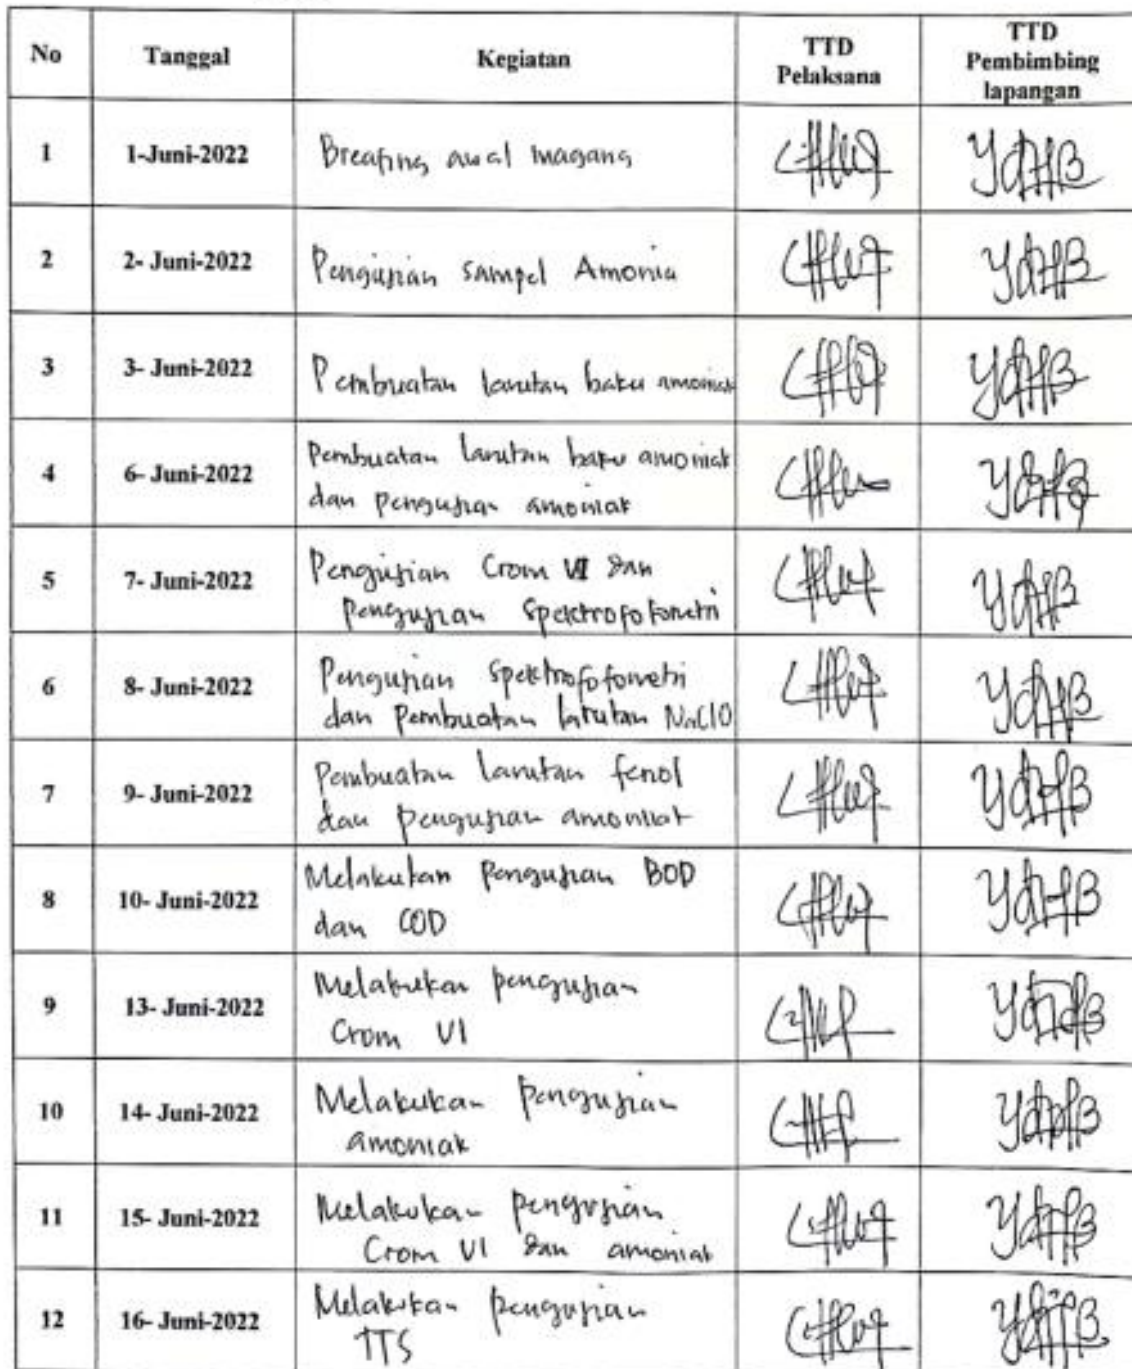 No Tanggal Kegiatan TTD Pelaksana TTD Pembimbing lapangan
1 1-Juni-2022 Breafing awal magang
2 2- Juni-2022 Pengujian sampel Amonia
3 3- Juni-2022 Pembuatan larutan baku amoniak
4 6- Juni-2022 Pembuatan larutan baku amoniak
dan pengujian amoniak
5 7- Juni-2022 Pengujian Crom VI dan
pengujian Spektrofotometri
6 8- Juni-2022 Pengujian Spektrofotometri
dan pembuatan larutan NaClO
7 9- Juni-2022 Pembuatan larutan fenol
dan pengujian amoniak
8 10- Juni-2022 Melakukan pengujian BOD
dan COD
9 13- Juni-2022 Melakukan pengujian
Crom VI
10 14- Juni-2022 Melakukan pengujian
amoniak
11 15- Juni-2022 Melakukan pengujian
Crom VI dan amoniak
12 16- Juni-2022 Melakukan pengujian
TTS